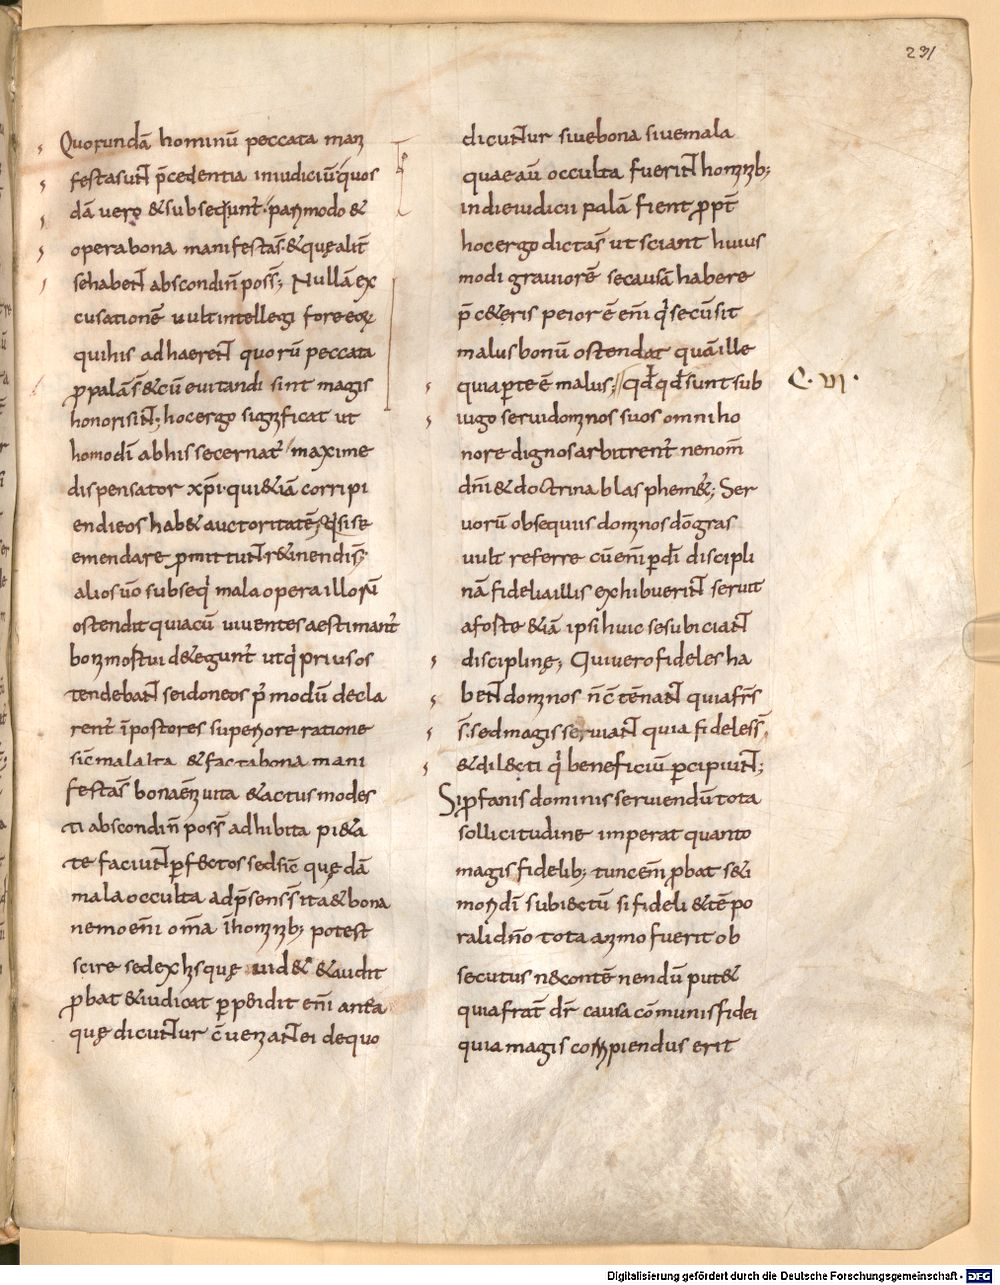 231
Quorundā hominū peccata mani
festasuꞇ̄ p̄cedentia iniudiciū quos
dā vero &subsequnt̄ parimodo &
operabona manifestas̄ &quęalit̄
sehabent abscondiñ poss̄; Nullā ex
cusationē vultintellegi foreeoꝝ
quihis adhaerent quorū peccata
ꝓpalās̄ &cūevitandi sint magis
honorisint; hocergo significat ut
homodī abhissecernat̄ maxime
dispensator xp̄i·qui&iā corripi
endieos hab& auctoritatē qd̄sise
emendare ꝓmittunt r&inendis̄·
aliosūo subseq̄ malaopera illorū
ostendit quiacū viventes aestimant̄
bonimostui d&egunt̄ utq̄ priusos
tendebant seidoneos p̄ modū decla
rent̄ īpostores superiore ratione
sic̄ malaita &factabona mani
festas̄ bonaeni vita &actus modes
ti abscondiñ poss̄ adhibita pi&a
te faciunt ꝑfectos sedsic̄ quędā
malaocculta adp̄sens s̄ ita&bona
nemoeñi om̄a īhominib; potest
scire sedexhisquę vid& &audit
ꝓbat &iudicat ꝑpendit eñi antea
quę dicuntur c̄veniant ei dequo
dicuntur sivebona sivemala
quaeaū occulta fuerint hominib;
indieiudicii palā fient ꝓpt̄
hocergo dictas̄ ut sciant huius
modi graviorē secausā habere
p̄ceteris peiorē eñi q̄ secūsit
malus bonū ostendat quāille
quiaparte ē malus; qd̄ qd̄sunt sub
C·VI·
iugo servidominos suos omniho
nore dignos arbitrent̄ nenom̄
dñi &doctrina blasphem&; Ser
vorū obsequiis dominos dō gras
vult referre cūeñi ꝑdī discipli
nā fideliaillis exhibuerint servit
afoste &iā ipsihuic sesubiciant
disciplinę; Quiverofideles ha
bent dominos ñc̄tēnant quiafrs̄
s̄·sedmagisserviant quia fideless̄·
&dilecti q̄ beneficiū ꝑcipiunt;
Siꝓfanis dominis serviendū tota
sollicitudine imperat quanto
magis fidelib; tunceñi ꝓbat s&i
moridī subiectū sifideli &tēpo
ralidño tota animo fuerit ob
secutus n&contēnendū put&
quiafrat̄ dr̄ causa cōmunisfidei
quia magis corripiendus erit
Digitalisierung gefördert durch die Deutsche Forschungsgemeinschaft - DFG